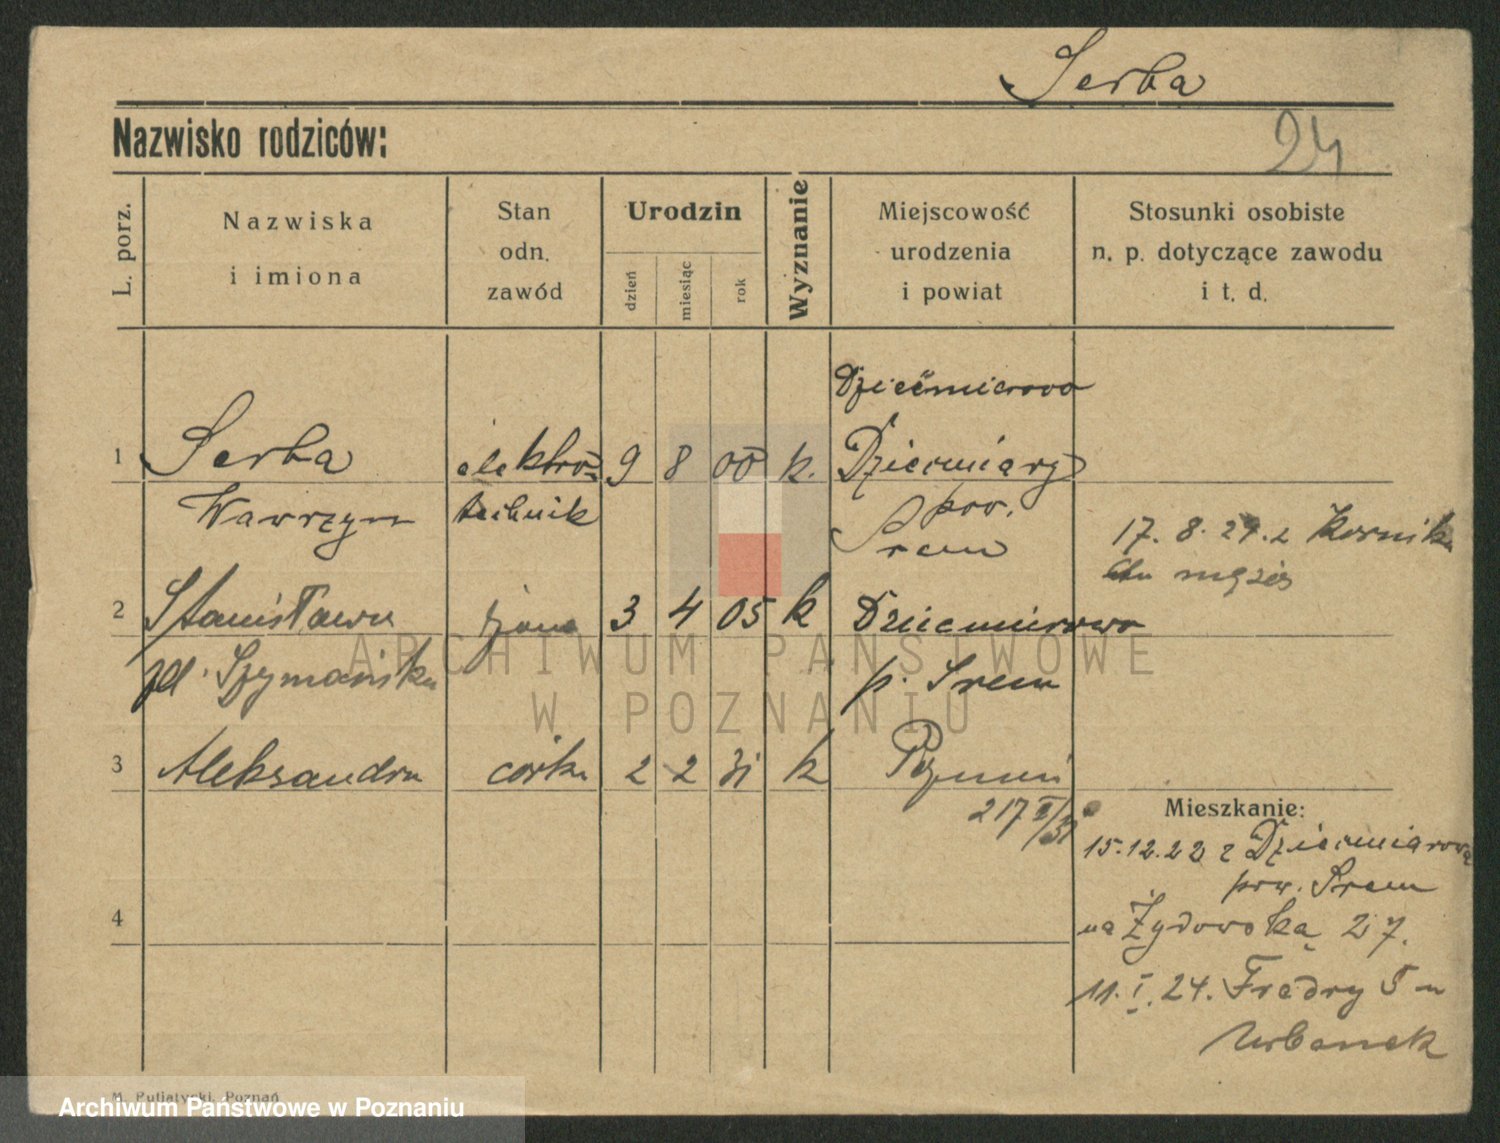 Serba
Nazwisko rodziców:
24
L. porz.
Nazwiska
i imiona
Stan
odn.
zawód
Urodzin
dzień
miesiąc
rok
Wyznanie
Miejscowość
urodzenia
i powiat
Stosunki osobiste
n. p. dotyczące zawodu
i t. d.
Dziećmierowo
1 Serba elektro- 9 8 00 k.
Wawrzyn technik pow.
Srem
17. 8. 29. z Kornika
do męża
2 Stanisława żona 3 4 05 k Dziecmierowo
Szymańska p. Srem
3 Aleksandra córka 2 2 31 k Poznań
217 II/31
Mieszkanie:
15.12.22 z
pow. Srem
na Żydowską 27.
11. I. 24. Fredry 5 u
Urbanek
4
ARCHIWUM PAŃSTWOWE
W POZNANIU
M. Putiatycki, Poznań
Archiwum Państwowe w Poznaniu